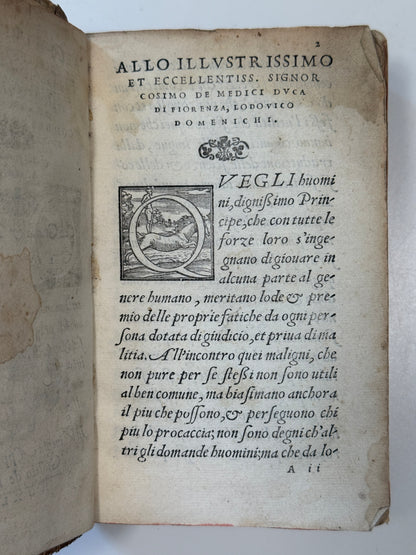 2
ALLO ILLVSTRISSIMO
ET ECCELLENTISS. SIGNOR
COSIMO DE MEDICI DVCA
DI FIORENZA, LODOVICO
DOMENICHI.
QVEGLI huomi
ni, dignißimo Prin-
cipe, che con tutte le
forze loro s'inge-
gnano di giouare in
alcuna parte al ge-
nere humano, meritano lode & pre-
mio delle proprie fatiche da ogni per-
sona dotata di giudicio, et priua di ma
litia. All'incontro quei maligni, che
non pure per se steßi non sono utili
al ben comune, ma biasimano anchora
il piu che possono, & perseguono chi
piu lo procaccia; non sono degni ch'al-
tri gli domande huomini; ma che da lo-
A ii